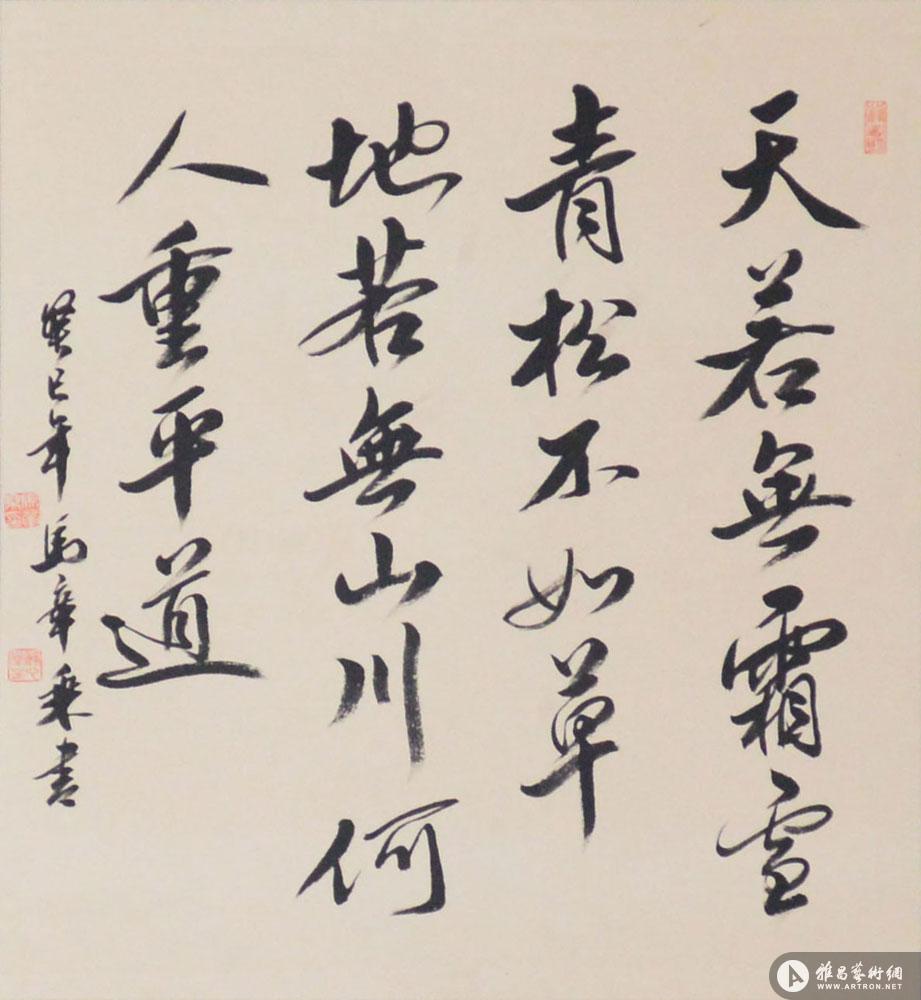 天若無霜雪
青松不如草
地若無山川何
人重平道
癸巳年馬章乘書
雅昌藝術網
WWW.ARTRON.NET